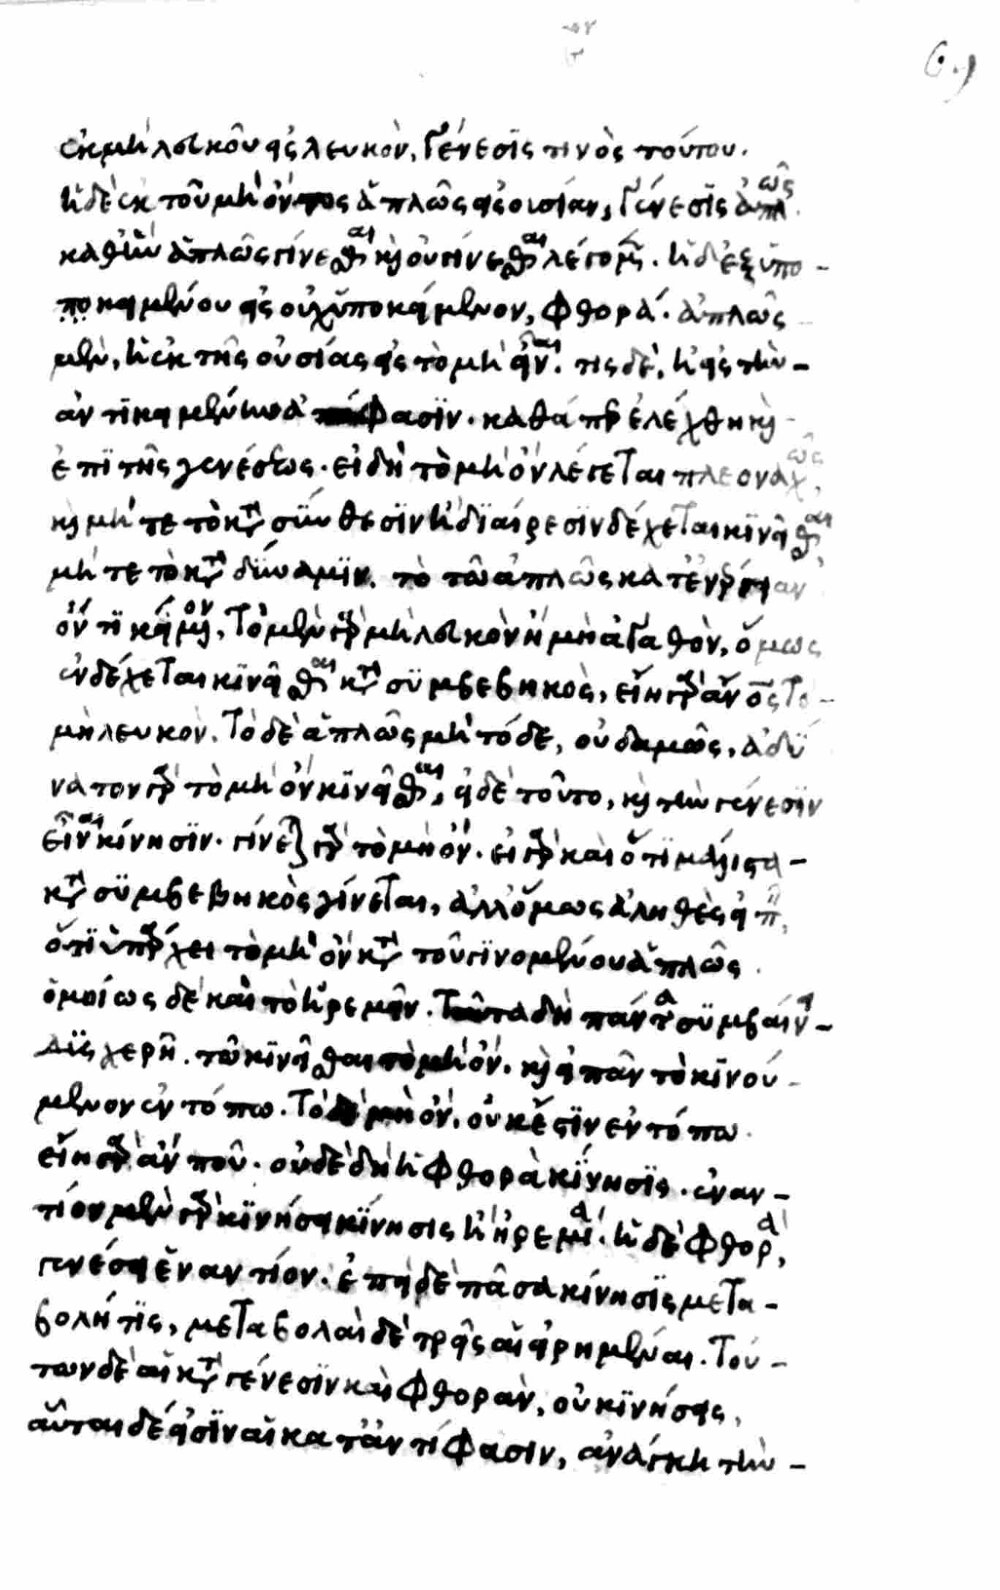 ἐκ μὴ λευκοῦ εἰς λευκὸν, γένεσις τινὸς τούτου.
ἡ δὲ ἐκ τοῦ μὴ ὄντος ἁπλῶς εἰς οὐσίαν, γένεσις ἁπλῶς.
καθ' ἣν ἁπλῶς γίνεσθαι καὶ οὐ γίνεσθαι λέγομεν. ἡ δ' ἐξ ὑπο-
ποκειμένου εἰς οὐχ ὑποκείμενον, φθορά. ἁπλῶς
μὲν, ἡ ἐκ τῆς οὐσίας εἰς τὸ μὴ εἶναι. τις δὲ, ἡ εἰς τὴν-
ἀντικειμένην ἀπόφασιν. καθάπερ ἐλέχθη καὶ
ἐπὶ τῆς γενέσεως. εἰ δὴ τὸ μὴ ὂν λέγεται πλεοναχῶς,
καὶ μήτε τὸ κατὰ σύνθεσιν ἢ διαίρεσιν δέχεται κινεῖσθαι
μήτε τὸ κατὰ δύναμιν. τὸ τῷ ἁπλῶς κατ' ἐνέργειαν
ὄντι κείμενον, τὸ μὲν γὰρ μὴ λευκὸν ἢ μὴ ἀγαθὸν, ὅμως
ἐνδέχεται κινεῖσθαι κατὰ συμβεβηκὸς, εἴη γὰρ ἂν ἄνθρωπος τὸ-
μὴ λευκὸν. τὸ δὲ ἁπλῶς μὴ τόδε, οὐδαμῶς, ἀδύ
νατον γὰρ τὸ μὴ ὂν κινεῖσθαι, εἰ δὲ τοῦτο, καὶ τὴν γένεσιν
εἶναι κίνησιν. γίνεται γὰρ τὸ μὴ ὄν. εἰ γὰρ καὶ ὅτι μάλιστα-
κατὰ συμβεβηκὸς γίνεται, ἀλλ' ὅμως ἀληθὲς εἰπεῖν,
ὅτι ὑπάρχει τὸ μὴ ὂν κατὰ τοῦ γινομένου ἁπλῶς.
ὁμοίως δὲ καὶ τὸ ἠρεμεῖν. ταῦτα δὴ πάντα συμβαίνει-
δυσχερῆ. τῷ κινεῖσθαι τὸ μὴ ὄν. καὶ εἰ πᾶν τὸ κινού-
μενον ἐν τόπω. τὸ δὲ μὴ ὂν, οὐκ ἔστιν ἐν τόπω.
εἴη γὰρ ἄν που. οὐδὲ δὴ ἡ φθορὰ κίνησις. ἐναν-
τίον μὲν γὰρ κινήσει κίνησις ἢ ἠρεμία. ἡ δὲ φθορὰ,
γενέσει ἐναντίον. ἐπεὶ δὲ πᾶσα κίνησις μετα-
βολή τις, μεταβολαὶ δὲ τρεῖς αἱ εἰρημέναι. τού-
των δὲ αἱ κατὰ γένεσιν καὶ φθορὰν, οὐ κινήσεις,
αὗται δέ εἰσιν αἱ κατ' ἀντίφασιν, ἀνάγκη τὴν-